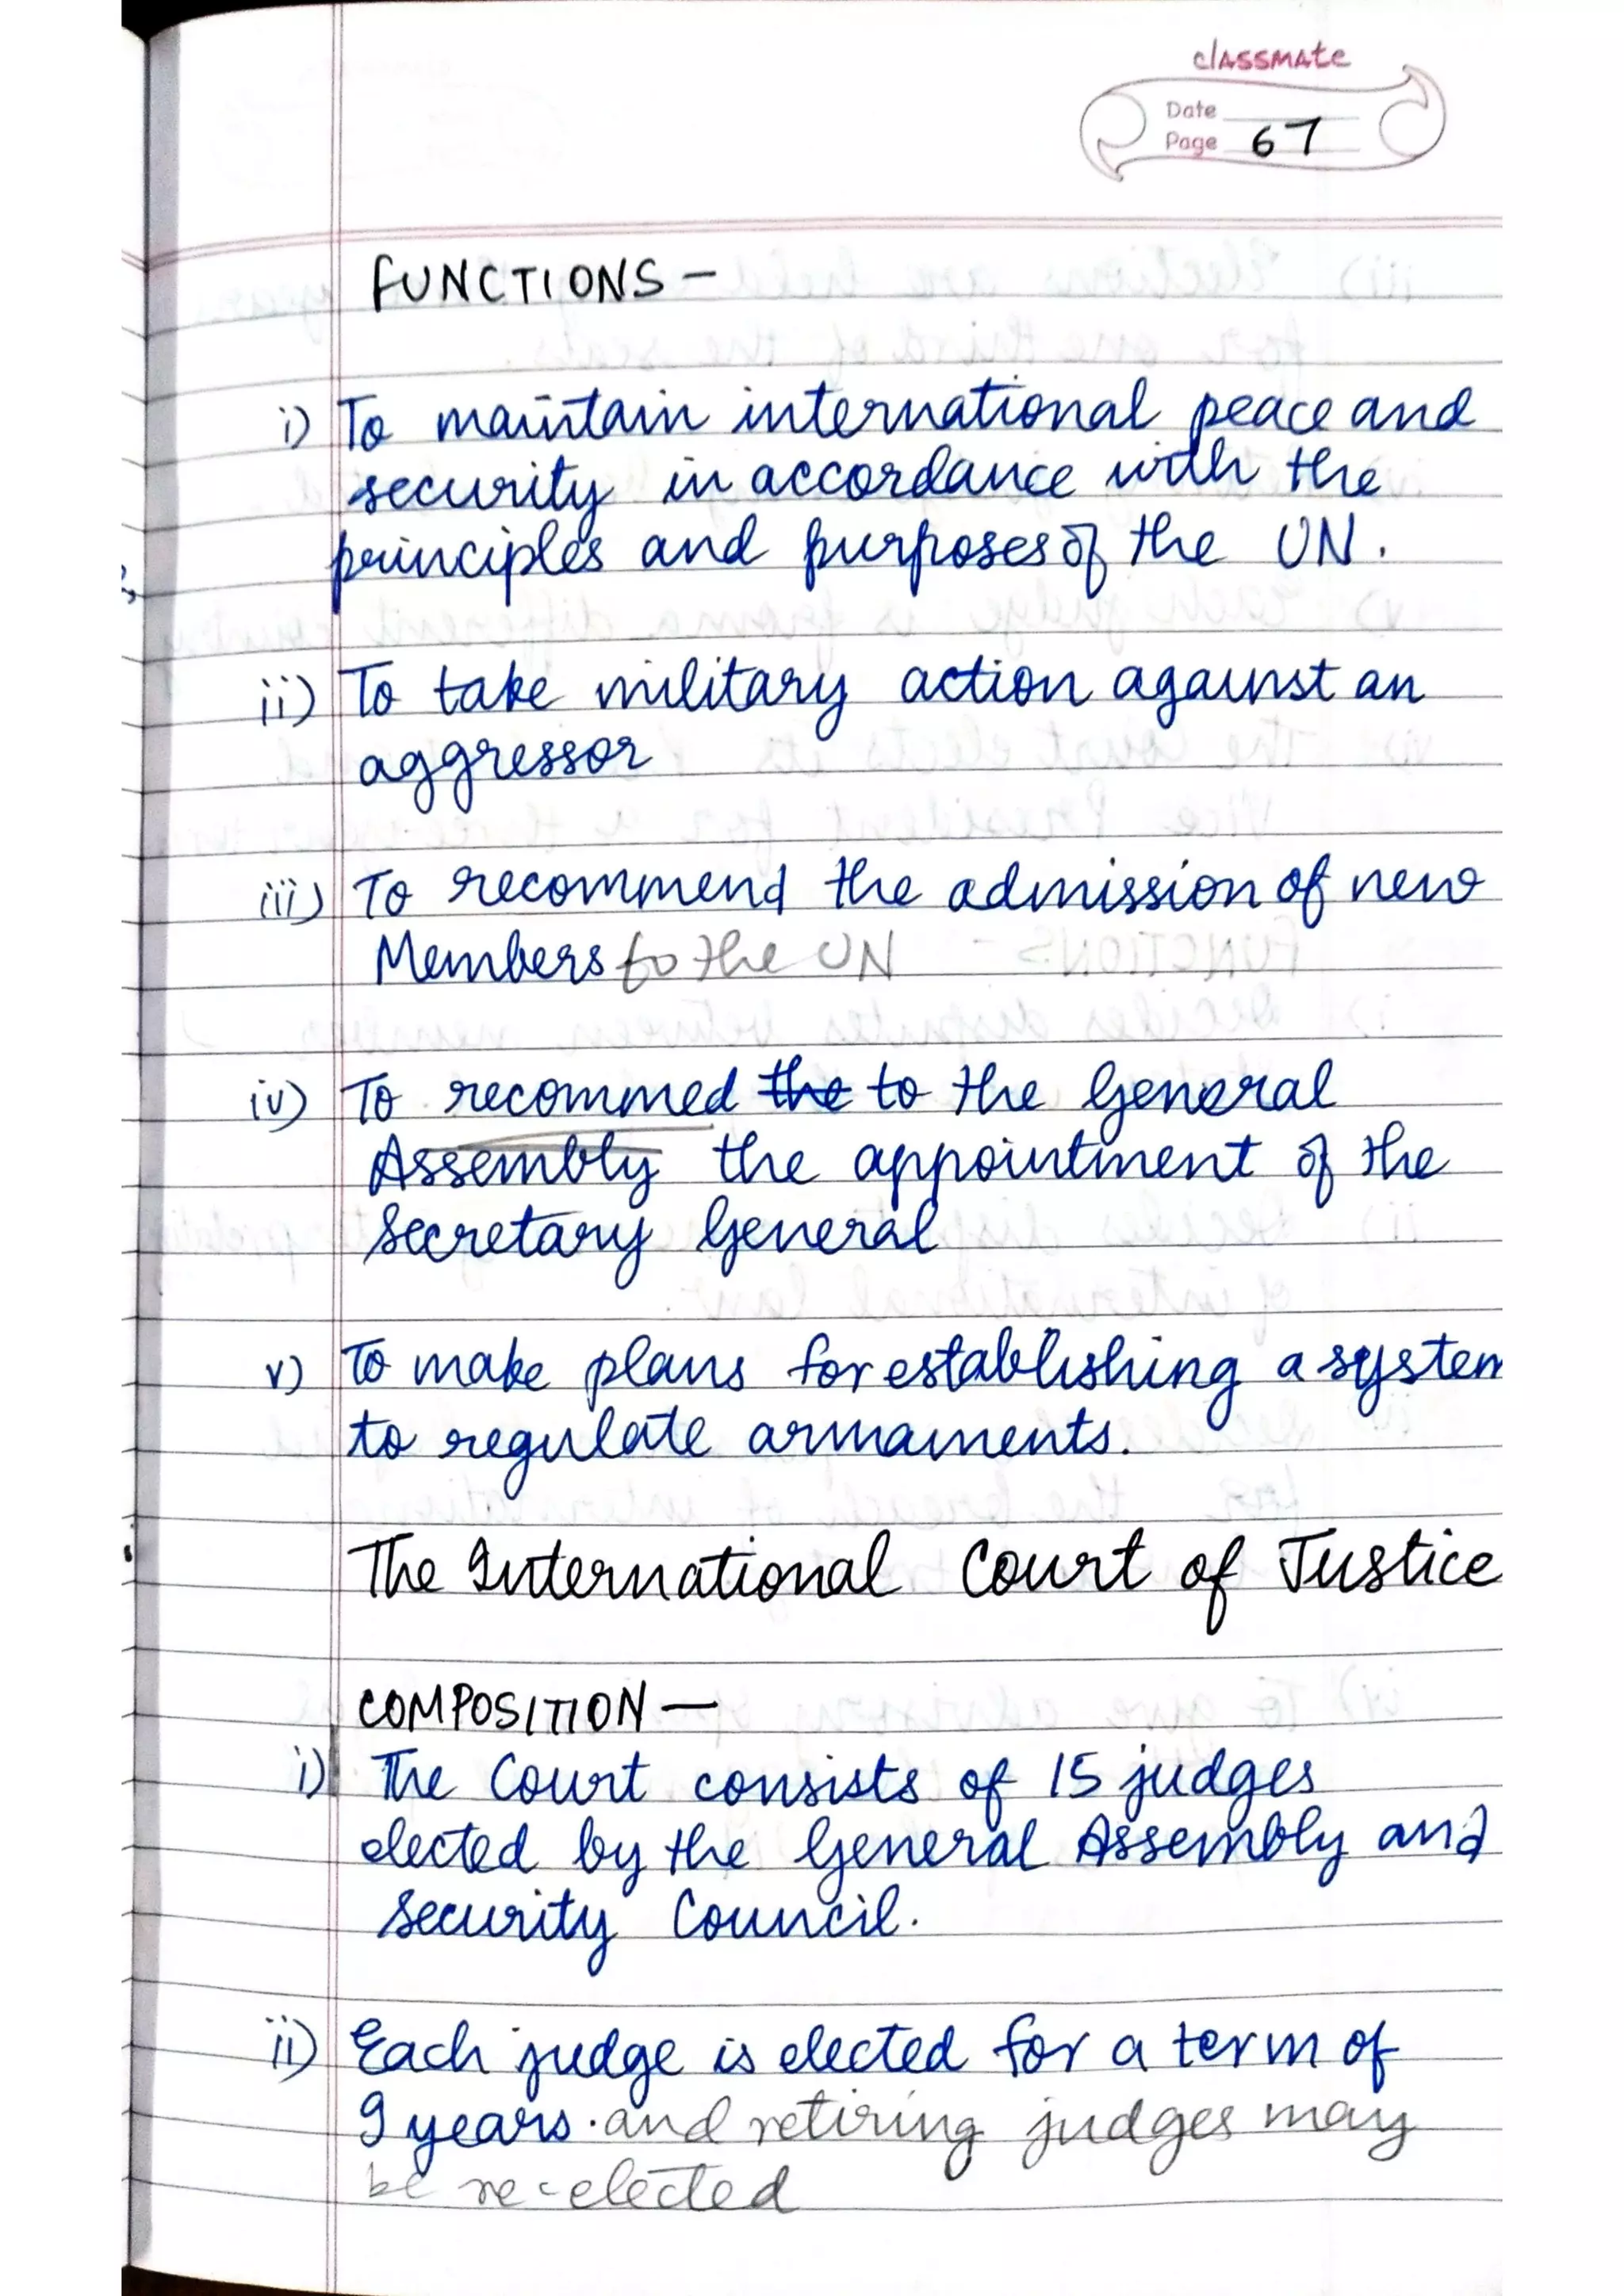 classmate
Date
Page 67
FUNCTIONS -
i) To maintain international peace and
security in accordance with the
principles and purposes of the UN.
ii) To take military action against an
aggressor
iii) To recommend the admission of new
Members to the UN
iv) To recommed the to the General
Assembly the appointment of the
Secretary General
v) To make plans for establishing a system
to regulate armaments.
The International Court of Justice
COMPOSITION —
i) The Court consists of 15 judges
elected by the General Assembly and
Security Council.
ii) Each judge is elected for a term of
9 years. and retiring judges may
be re-elected